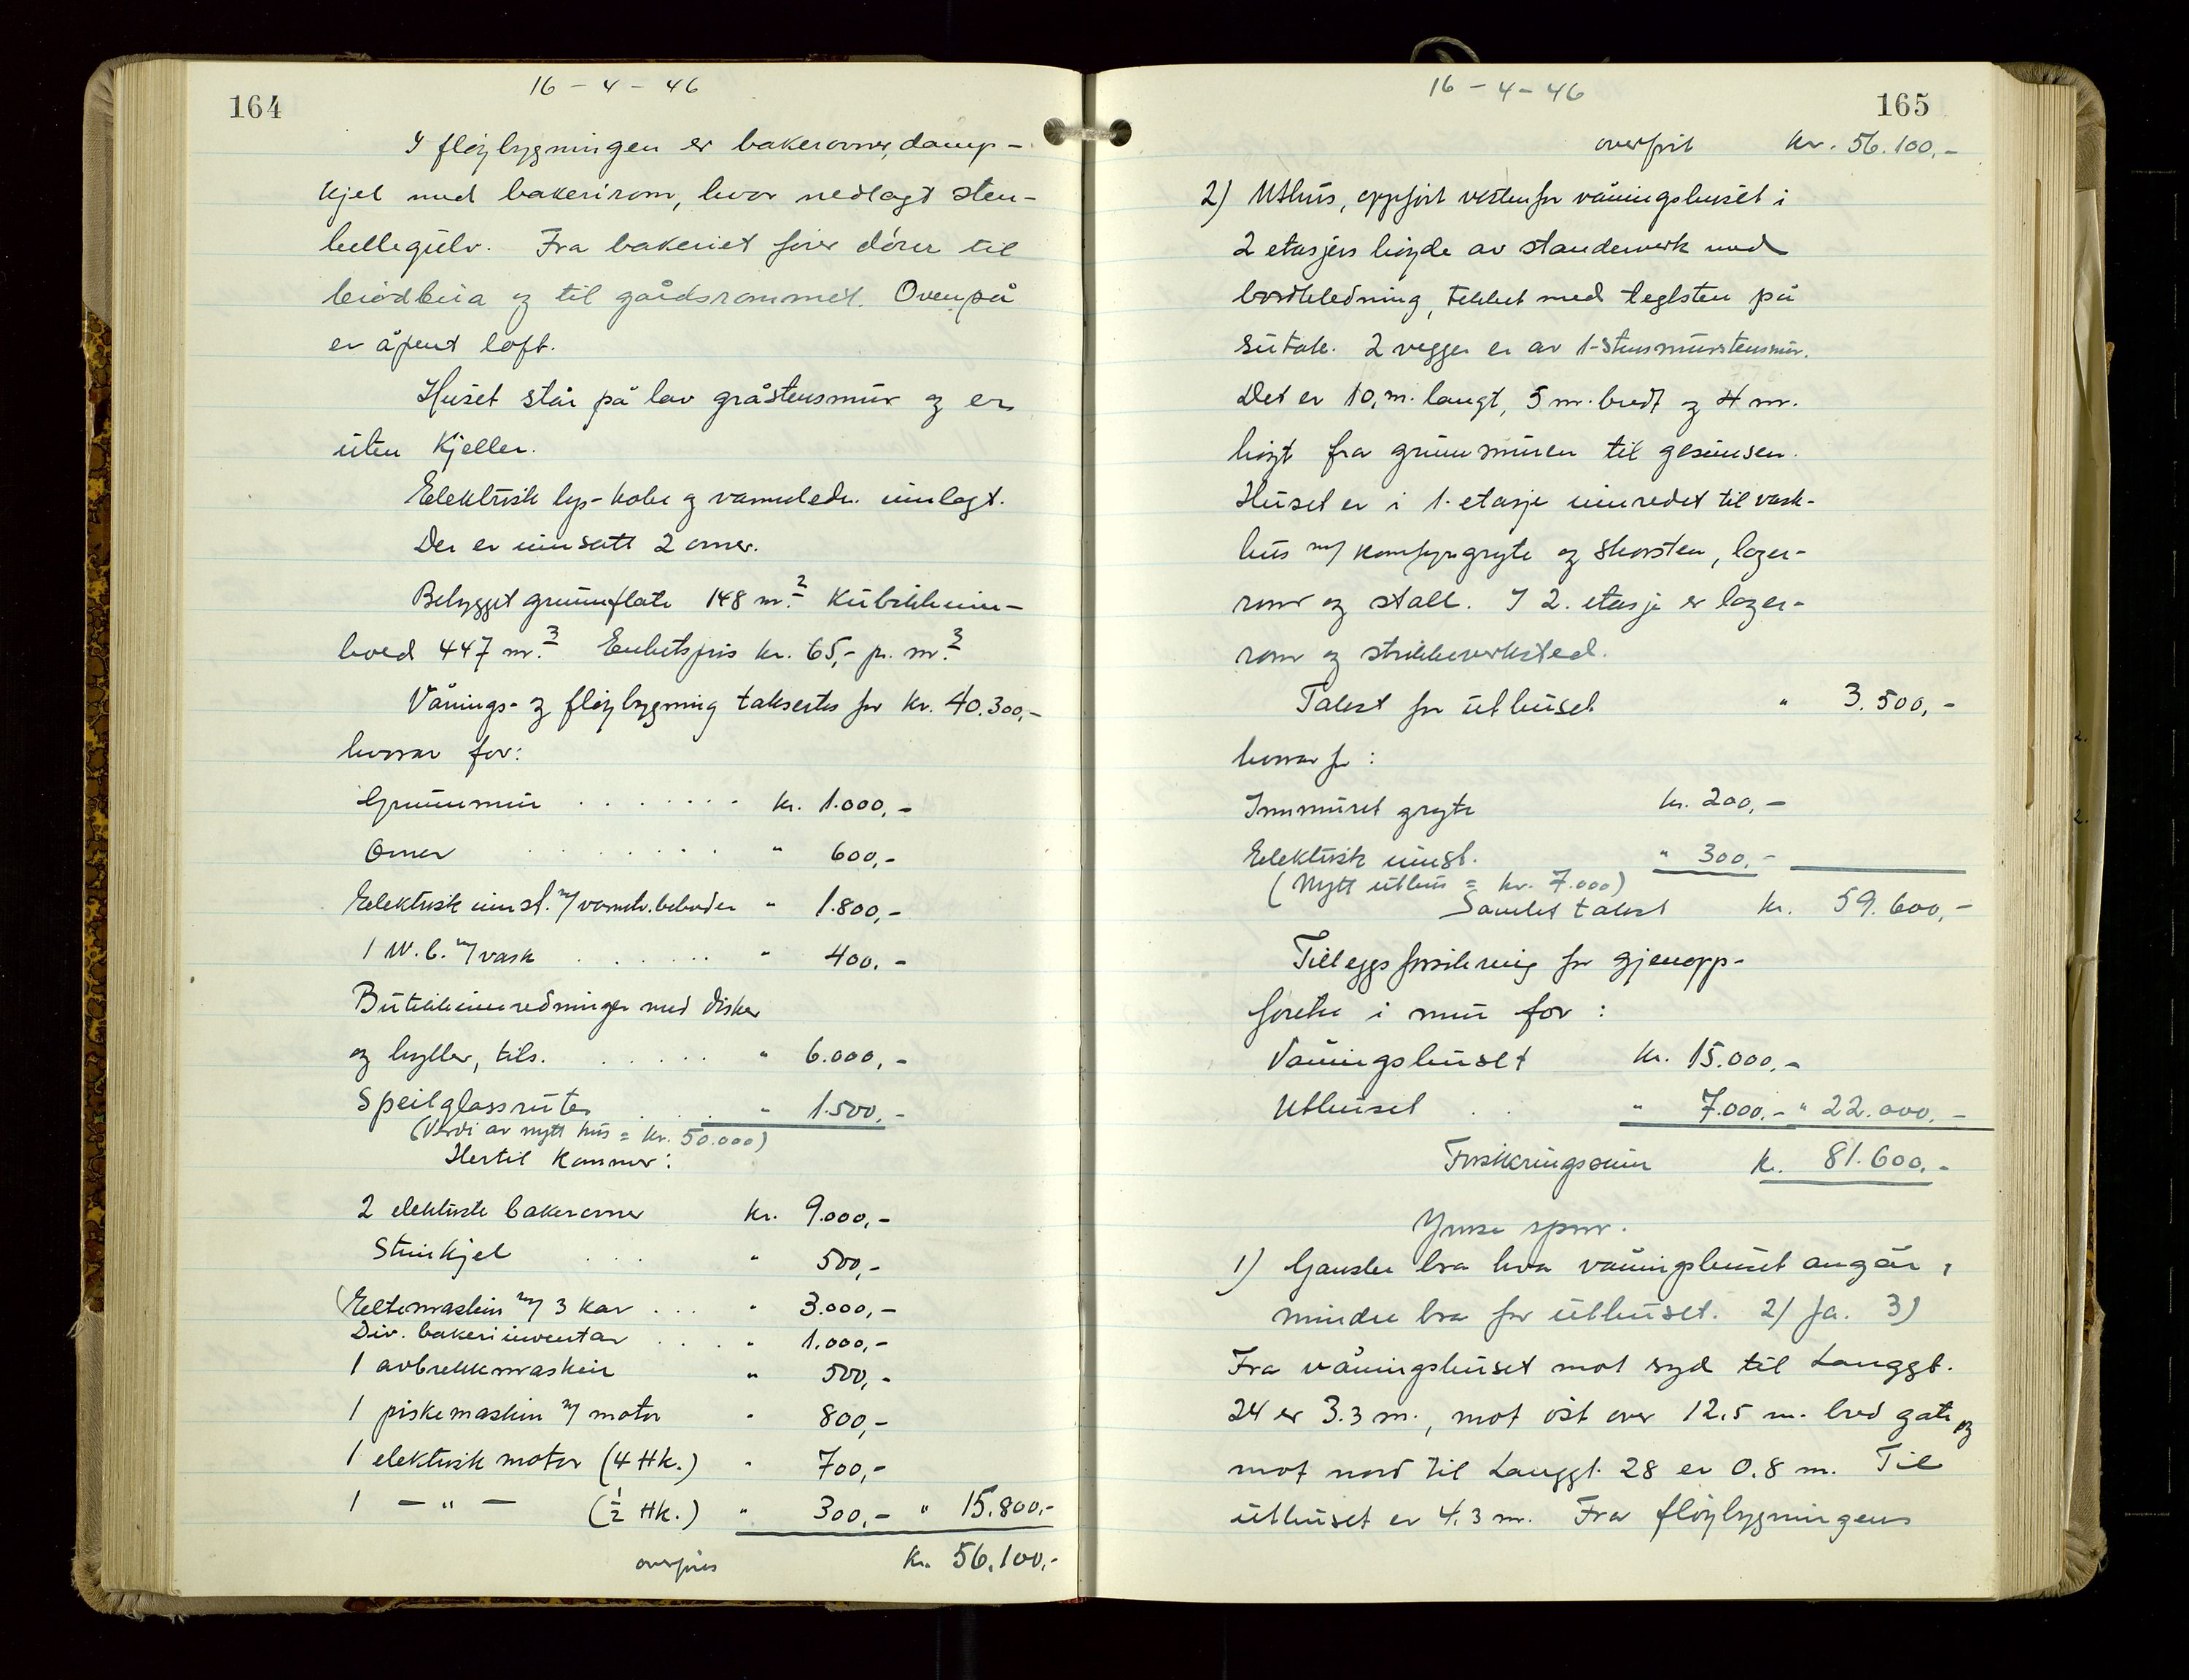 164
16 – 4 – 46
I fløybygningen er bakerovner, damp-
kjel med bakerirom, hvor nedlagt sten-
hellegulv. Fra bakeriet fører dører til
brødbua og til gårdsrommet. Ovenpå
er åpent loft.
Huset står på lav gråstensmur og er
uten kjeller.
Elektrisk lys- koke og varmeledn. innlagt.
Der er innsatt 2 ovner.
Bebygget grunnflate 148 m.² Kubikkinn-
hold 447 m.³ Enhetspris kr. 65,- pr. m.³
Vånings- og fløybygning takseres for kr. 40.300,-
hvorav for:
Grunnmur . . . . . . . kr. 1.000,-
Ovner . . . . . . . " 600,-
Elektrisk innst. m/ varmtv.beholder " 1.800,-
1 W.C. m/ vask . . . . . . " 400.-
Butikkinnredninger med disker
og hyller, tils. . . . . . " 6.000,-
Speilglassruter . . . " 1.500,-
(Verdi av nytt hus = kr. 50.000)
Hertil kommer:
2 elektriske bakerovner kr. 9.000,-
Stimkjel . . . " 500,-
Eltemaskin m/ 3 kar . . . " 3.000,-
Div. bakeriinventar . . . . " 1.000,-
1 avbrekkmaskin " 500,-
1 piskemaskin m/ motor " 800,-
1 elektrisk motor (4 Hk.) " 700,-
1 – " – (½ Hk.) " 300,- " 15.800,-
overføres kr. 56.100,-
165
16 – 4 – 46
overført kr. 56.100,-
2) Uthus, oppført vestenfor våningshuset i
2 etasjers høyde av standerverk med
bordkledning, tekket med teglsten på
sutak. 2 vegger er av 1-stens murstensmur.
Det er 10,m. langt, 5 m. bredt og 4 m.
høyt fra grunnmuren til gesimsen.
Huset er i 1. etasje innredet til vask-
hus m/ komfyrgryte og skorsten, lager-
rom og stall. I 2. etasje er lager-
rom og strikkeverksted.
Takst for uthuset " 3.500,-
hvorav for:
Innmuret gryte kr. 200,-
Elektrisk innst. " 300,-
(Nytt uthus = kr. 7.000)
Samlet takst kr. 59.600,-
Tilleggsforsikring for gjenopp-
førelse i mur for:
Våningshuset kr. 15.000,-
Uthuset . . " 7.000.- " 22.000,-
Forsikringssum kr. 81.600,-
1) Ganske bra hva våningshuset angår,
mindre bra for uthuset. 2) Ja. 3)
Fra våningshuset mot syd til Langgt.
24 er 3.3 m., mot øst over 12.5 m. bred gate og
mot nord til Langgt. 28 er 0.8 m. Til
uthuset er 4.3 m. Fra fløybygningens